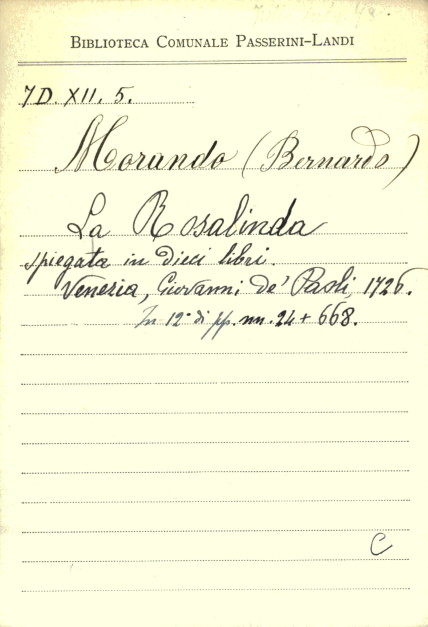 BIBLIOTECA COMUNALE PASSERINI-LANDI
7D. XII. 5.
Morando (Bernardo)
La Rosalinda
spiegata in dieci libri.
Venezia, Giovanni de' Paoli, 1726.
In 12° di pp. nn. 24 + 668.
C